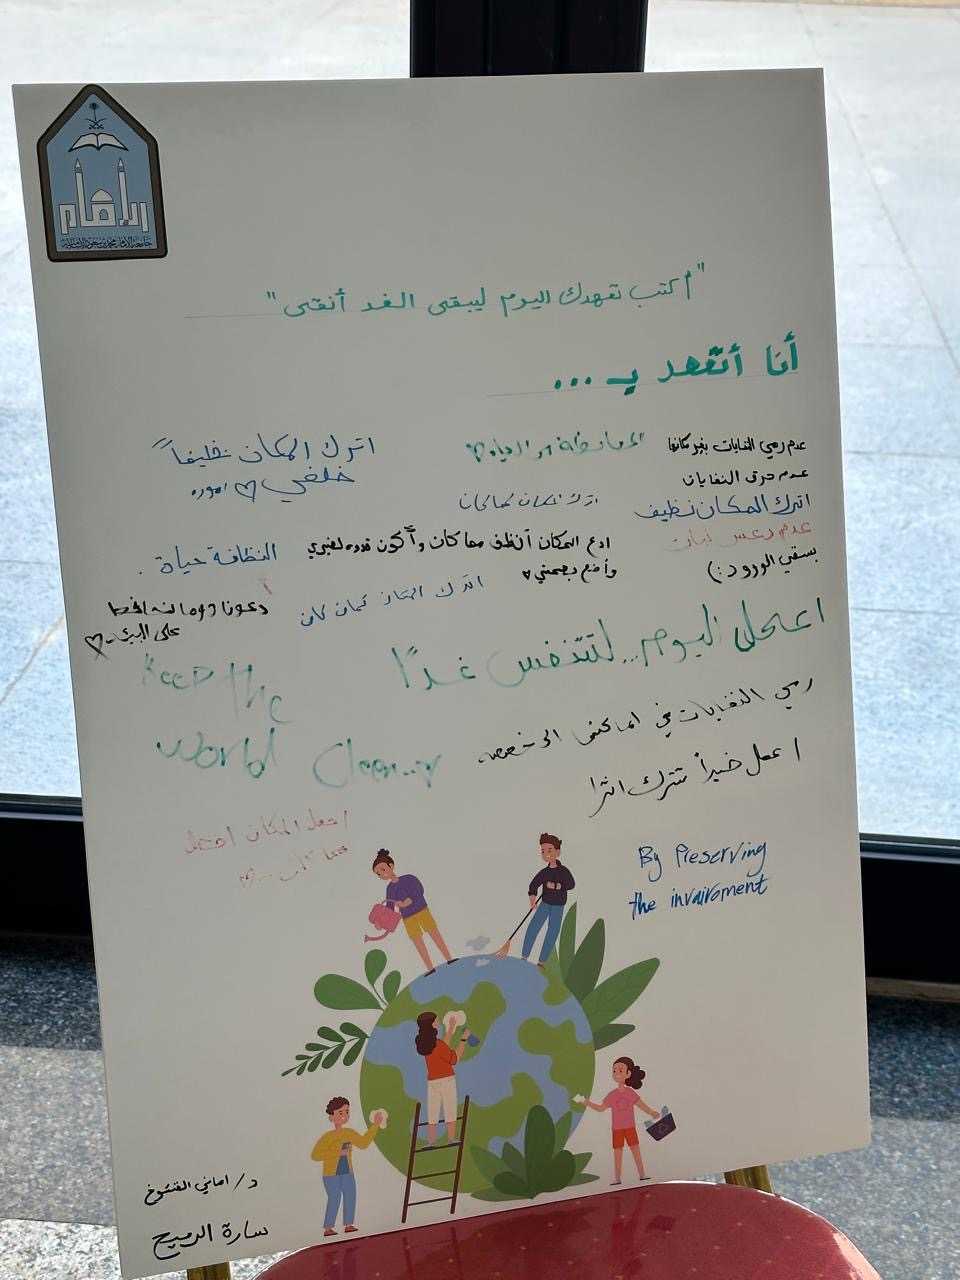 الإمام
جامعة الإمام محمد بن سعود الإسلامية
"أكتب تعهدك اليوم ليبقى الغد أنقى"
أنا أتعهد بـ ...
عدم رمي النفايات بغير مكانها
عدم حرق النفايات
اترك المكان نظيف
عدم دعس
بسقي الورود :)
المحافظة
اترك المكان نظيفاً
خلفي
اترك المكان كماكان
ادع المكان أنظف مما كان وأكون قدوه لغيري
وأضع بصمتي
النظافة حياة .
اترك المكان كمان كان
دعونا
على البيئة
اعملي اليوم... لتتنفس غدًا
Keep the
world Clean
رمي النفايات في
اعمل خيراً تترك اثرا
اجعل المكان اجمل
مما كان
By Preserving
the invairoment
د/ اماني الفنتوخ
سارة الرميح